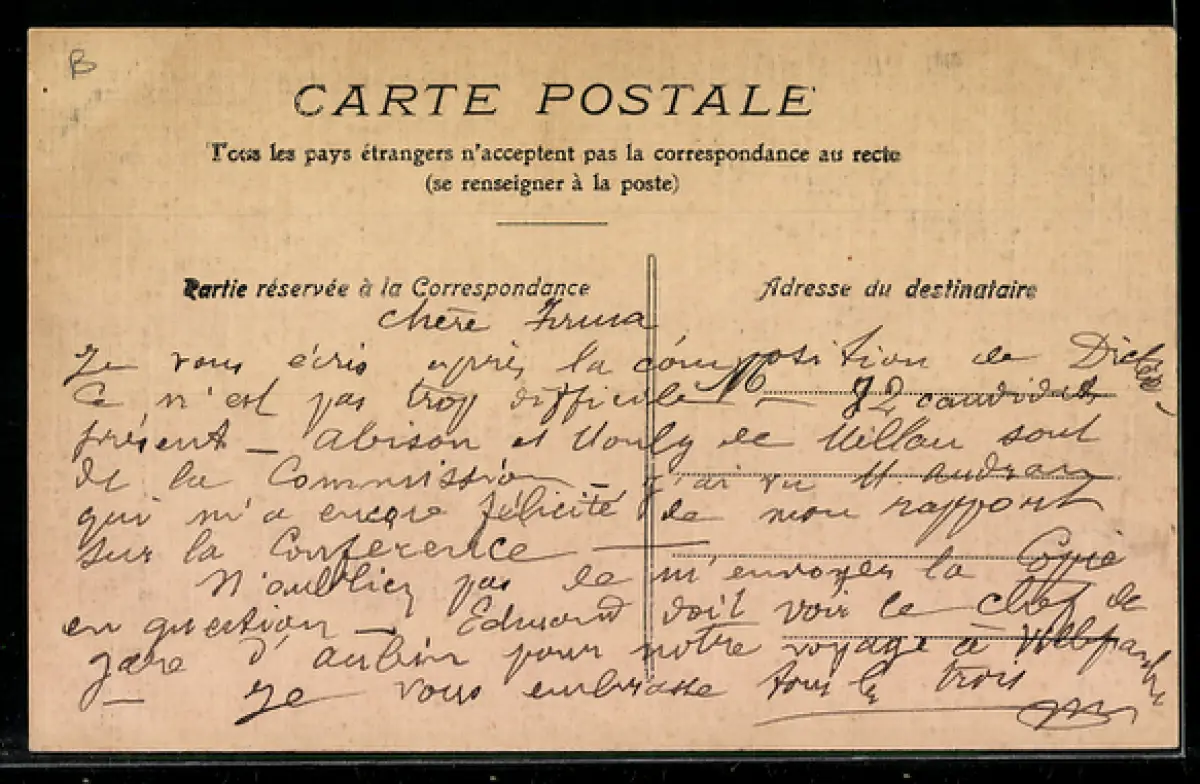 B
CARTE POSTALE
Tous les pays étrangers n'acceptent pas la correspondance au recto
(se renseigner à la poste)
Partie réservée à la Correspondance
Adresse du destinataire
chère Irma
Je vous écris après la composition de Dictée
Ce n'est pas trop difficile — 72 candidats
présent — et de Millau sont
de la Commission — j'ai vu M. Audran
qui m'a encore félicité de mon rapport
sur la Conférence —
N'oubliez pas de m'envoyer la Copie
en question — Edmond doit voir le chef de
gare d'aubin pour notre voyage à Villefranche
— Je vous embrasse tous les trois